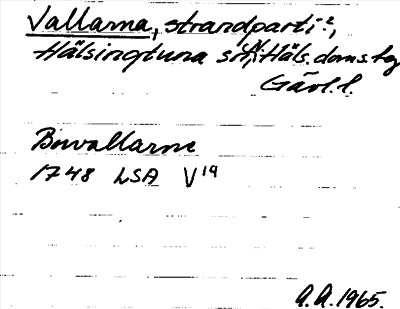 Vallarna, strandparti²,
Hälsingtuna sn, N Häls. doms. tg
Gävl. l.
Buvallarne
1748 LSA V 19
A.A. 1965.